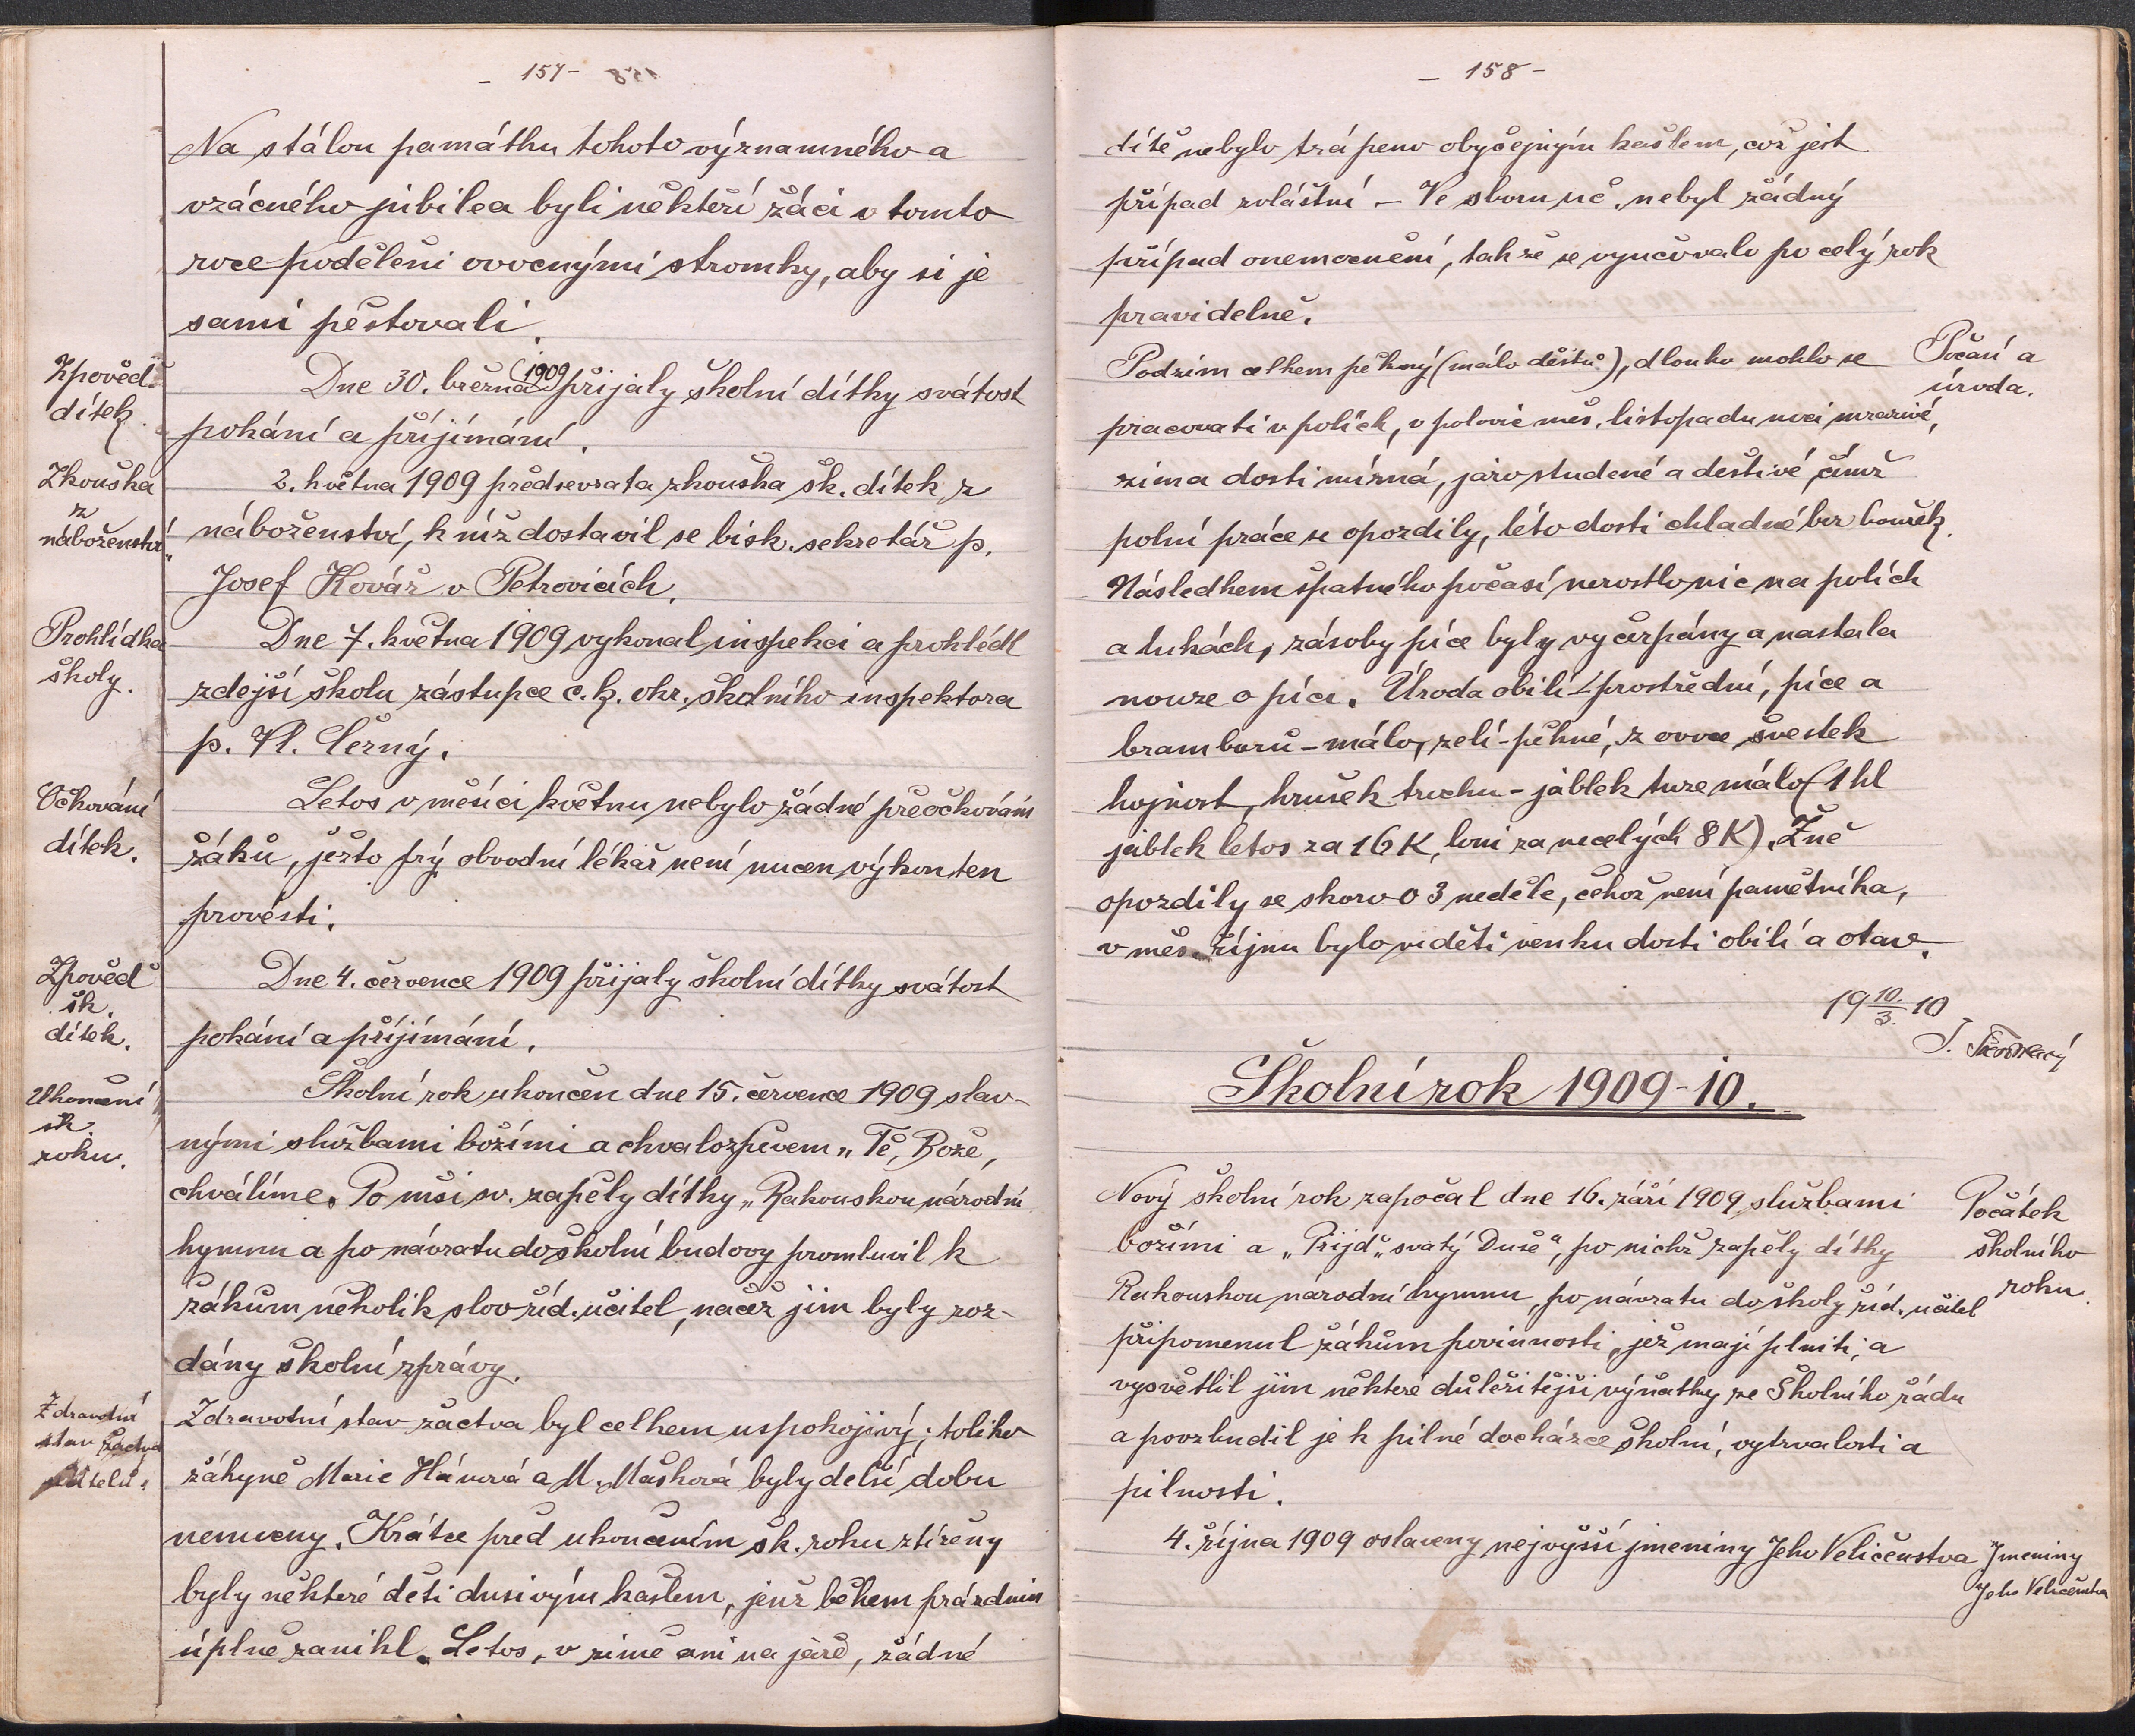 - 157 -
Na stálou památku tohoto významného a
vzácného jubilea byli někteří žáci v tomto
roce poděleni ovocnými stromky, aby si je
sami pěstovali.
Zpověď
dítek.
Dne 30. března (1909) přijaly školní dítky svátost
pokání a přijímání.
Zkouška
z
náboženství.
2. května 1909 předsevzata zkouška šk. dítek z
náboženství, k níž dostavil se bisk. sekretář p.
Josef Kovář v Petrovicích.
Prohlídka
školy.
Dne 7. května 1909 vykonal inspekci a prohlédl
zdejší školu zástupce c. k. okr. školního inspektora
p. Vl. Černý.
Očkování
dítek.
Letos v měsíci květnu nebylo žádné přeočkování
žáků, ježto prý obvodní lékař není nucen výkon ten
provésti.
Zpověď
šk.
dítek.
Dne 4. července 1909 přijaly školní dítky svátost
pokání a přijímání.
Ukončení
šk.
roku.
Školní rok ukončen dne 15. července 1909 slav-
nými službami božími a chvalozpěvem „Tě, Bože,
chválíme. Po mši sv. zapěly dítky „Rakouskou národní
hymnu a po návratu do školní budovy promluvil k
žákům několik slov říd. učitel, načež jim byly roz-
dány školní zprávy.
Zdravotní
stav žactva
učitelů.
Zdravotní stav žactva byl celkem uspokojivý; toliko
žákyně Marie Hánová a M. Mašková byly delší dobu
nemocny. Krátce před ukončením šk. roku ztíženy
byly některé děti dusivým kašlem, jenž během prázdnin
úplně zanikl. Letos, v zimě ani na jaře, žádné
- 158 -
dítě nebylo trápeno obyčejným kašlem, což jest
případ zvláštní. - Ve sboru uč. nebyl žádný
případ onemocnění, takže se vyučovalo po celý rok
pravidelně.
Počasí a
úroda.
Podzim celkem pěkný (málo dešťů), dlouho mohlo se
pracovati v polích, v polovic měs. listopadu noci mrazivé,
zima dosti mírná, jaro studené a deštivé, čímž
polní práce se opozdily, léto dosti chladné bez bouřek.
Následkem špatného počasí nerostlo nic na polích
a lukách, zásoby píce byly vyčerpány a nastala
nouze o píci. Úroda obilí - prostřední, píce a
bramborů - málo, zelí - pěkné, z ovoce švestek
hojnost, hrušek trochu - jablek tuze málo (1 hl
jablek letos za 16 K, loni za necelých 8 K). Žně
opozdily se skoro o 3 neděle, čehož není pamětníka,
v měs. říjnu bylo viděti venku dosti obilí a otav.
19 10./3. 10
Školní rok 1909-10.
Počátek
školního
roku.
Nový školní rok započal dne 16. září 1909 službami
božími a „Přijď „svatý Duše“, po nichž zapěly dítky
Rakouskou národní hymnu, po návratu do školy říd. učitel
připomenul žákům povinnosti, jež mají plniti, a
vysvětlil jim některé důležitější výňatky ze Školního řádu
a povzbudil je k pilné docházce školní, vytrvalosti a
pilnosti.
4. října 1909 oslaveny nejvyšší jmeniny Jeho Veličenstva
Jmeniny
Jeho Veličenstva